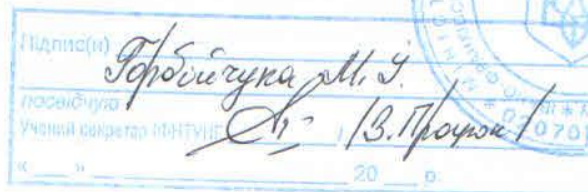 Підпис(и)
Горбійчука М. І.
посвідчую
Учений секретар ІФНТУНГ / В. Процюк /
« » 20 р.
02070